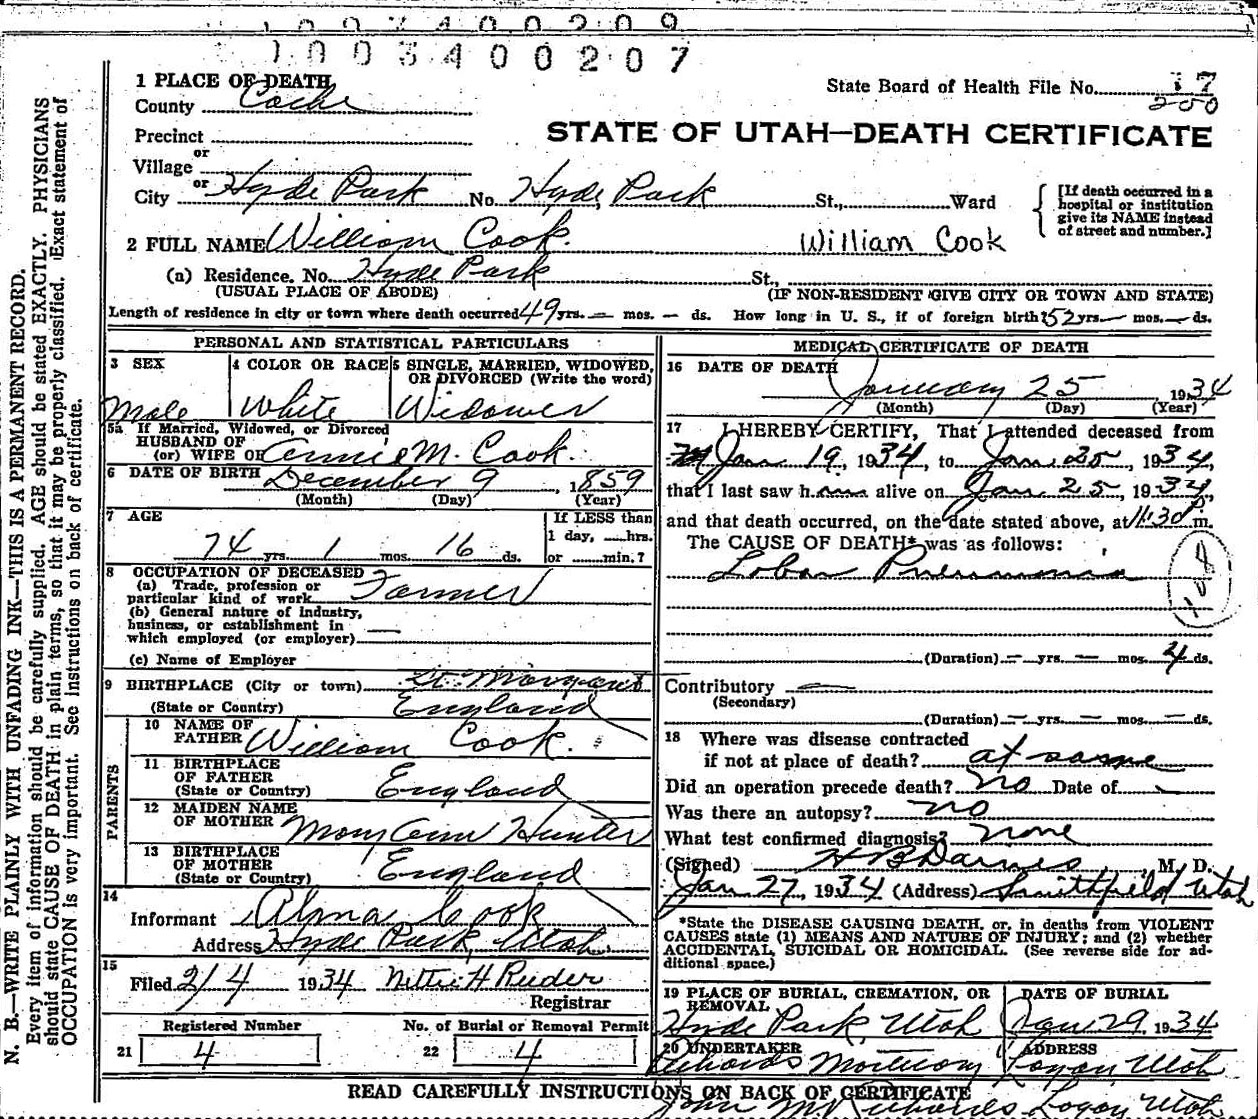 1003400209
1003400207
1 PLACE OF DEATH
State Board of Health File No. 17
County Cache
200
STATE OF UTAH—DEATH CERTIFICATE
Precinct
or
Village
or
City Hyde Park No. Hyde Park St., Ward
[If death occurred in a
hospital or institution
give its NAME instead
of street and number.]
2 FULL NAME William Cook. William Cook
(a) Residence. No. Hyde Park St.,
(USUAL PLACE OF ABODE) (IF NON-RESIDENT GIVE CITY OR TOWN AND STATE)
Length of residence in city or town where death occurred 49 yrs. — mos. — ds. How long in U. S., if of foreign birth? 52 yrs. — mos. — ds.
PERSONAL AND STATISTICAL PARTICULARS
3 SEX 4 COLOR OR RACE 5 SINGLE, MARRIED, WIDOWED,
OR DIVORCED (Write the word)
Male White Widower
5a If Married, Widowed, or Divorced
HUSBAND OF
(or) WIFE OF Annie M. Cook
6 DATE OF BIRTH December 9, 1859
(Month) (Day) (Year)
7 AGE If LESS than
1 day, ....hrs.
74 yrs. 1 mos. 16 ds. or ......min.?
8 OCCUPATION OF DECEASED
(a) Trade, profession or
particular kind of work Farmer
(b) General nature of industry,
business, or establishment in
which employed (or employer) —
(c) Name of Employer
9 BIRTHPLACE (City or town)
(State or Country) England
PARENTS
10 NAME OF
FATHER William Cook.
11 BIRTHPLACE
OF FATHER
(State or Country) England
12 MAIDEN NAME
OF MOTHER Mary Ann Hunter
13 BIRTHPLACE
OF MOTHER
(State or Country) England
14
Informant Alma Cook
Address Hyde Park, Utah.
15
Filed 2/4 1934 Nettie H Reeder
Registrar
Registered Number No. of Burial or Removal Permit
21 4 22 4
MEDICAL CERTIFICATE OF DEATH
16 DATE OF DEATH
January 25 1934
(Month) (Day) (Year)
17 I HEREBY CERTIFY, That I attended deceased from
Jan 19, 1934, to Jan 25, 1934,
that I last saw him alive on Jan 25, 1934,
and that death occurred, on the date stated above, at 11:30 P m.
The CAUSE OF DEATH* was as follows:
Lobar Pneumonia
108
(Duration) — yrs. — mos. 4 ds.
Contributory —
(Secondary)
(Duration) — yrs. — mos. — ds.
18 Where was disease contracted
if not at place of death? at same
Did an operation precede death? no Date of —
Was there an autopsy? no
What test confirmed diagnosis? none
(Signed) M. D.
Jan 27, 1934 (Address) Smithfield Utah
*State the DISEASE CAUSING DEATH, or, in deaths from VIOLENT
CAUSES state (1) MEANS AND NATURE OF INJURY; and (2) whether
ACCIDENTAL, SUICIDAL OR HOMICIDAL. (See reverse side for ad-
ditional space.)
19 PLACE OF BURIAL, CREMATION, OR
REMOVAL DATE OF BURIAL
Hyde Park, Utah Jan 29, 1934
20 UNDERTAKER ADDRESS
Richards Mortuary Logan, Utah
READ CAREFULLY INSTRUCTIONS ON BACK OF CERTIFICATE
John M. Richards Logan Utah
N. B.—WRITE PLAINLY WITH UNFADING INK—THIS IS A PERMANENT RECORD.
Every item of information should be carefully supplied, AGE should be stated EXACTLY. PHYSICIANS
should state CAUSE OF DEATH in plain terms, so that it may be properly classified. Exact statement of
OCCUPATION is very important. See instructions on back of certificate.